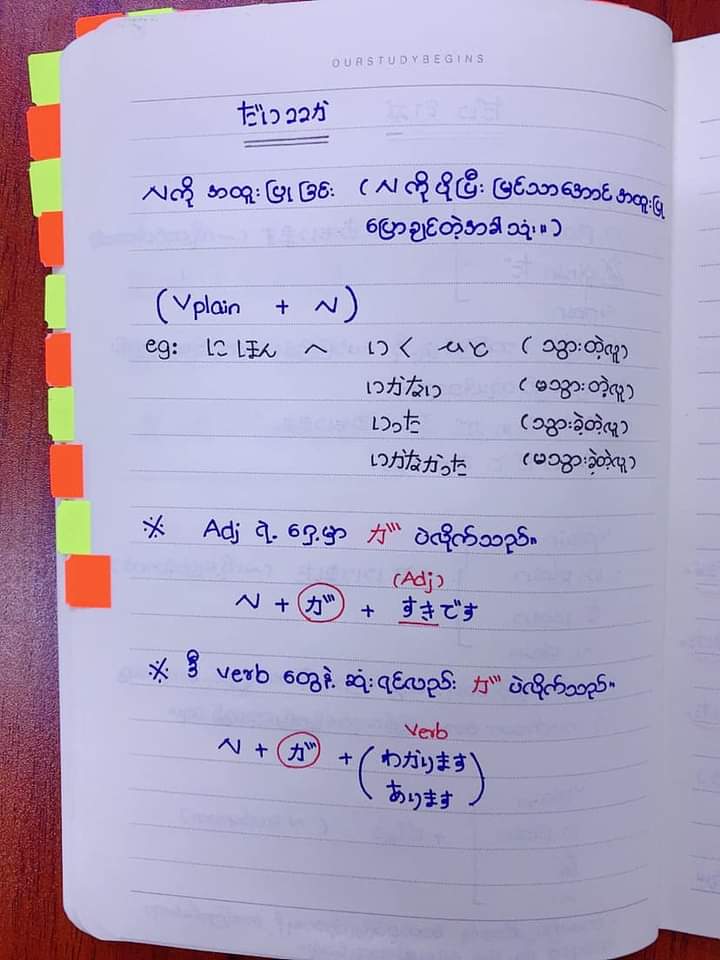 OURSTUDYBEGINS
だい 22 か
N ကို အထူးပြုခြင်း (N ကို ပိုပြီး မြင်သာအောင် အထူးပြု
ပြောချင်တဲ့အခါ သုံး။)
(Vplain + N)
eg: にほん へ いく ひと (သွားတဲ့လူ)
いかない (မသွားတဲ့လူ)
いった (သွားခဲ့တဲ့လူ)
いかなかった (မသွားခဲ့တဲ့လူ)
※ Adj ရဲ့ ရှေ့မှာ が ပဲလိုက်သည်။
(Adj)
N + が + すきです
※ ဒီ verb တွေနဲ့ ဆုံးရင်လည်း が ပဲလိုက်သည်။
Verb
N + が + (わかります
あります)